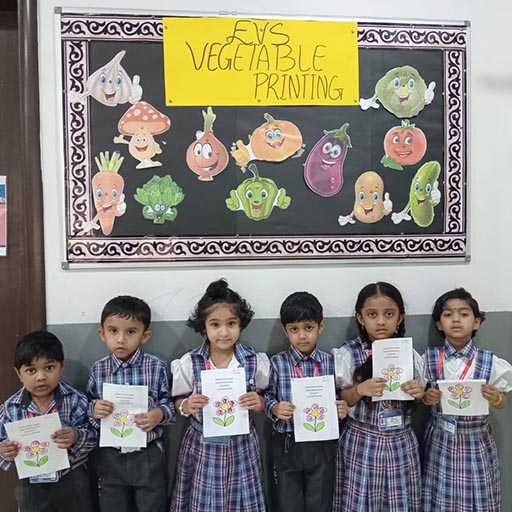 EVS
VEGETABLE
PRINTING